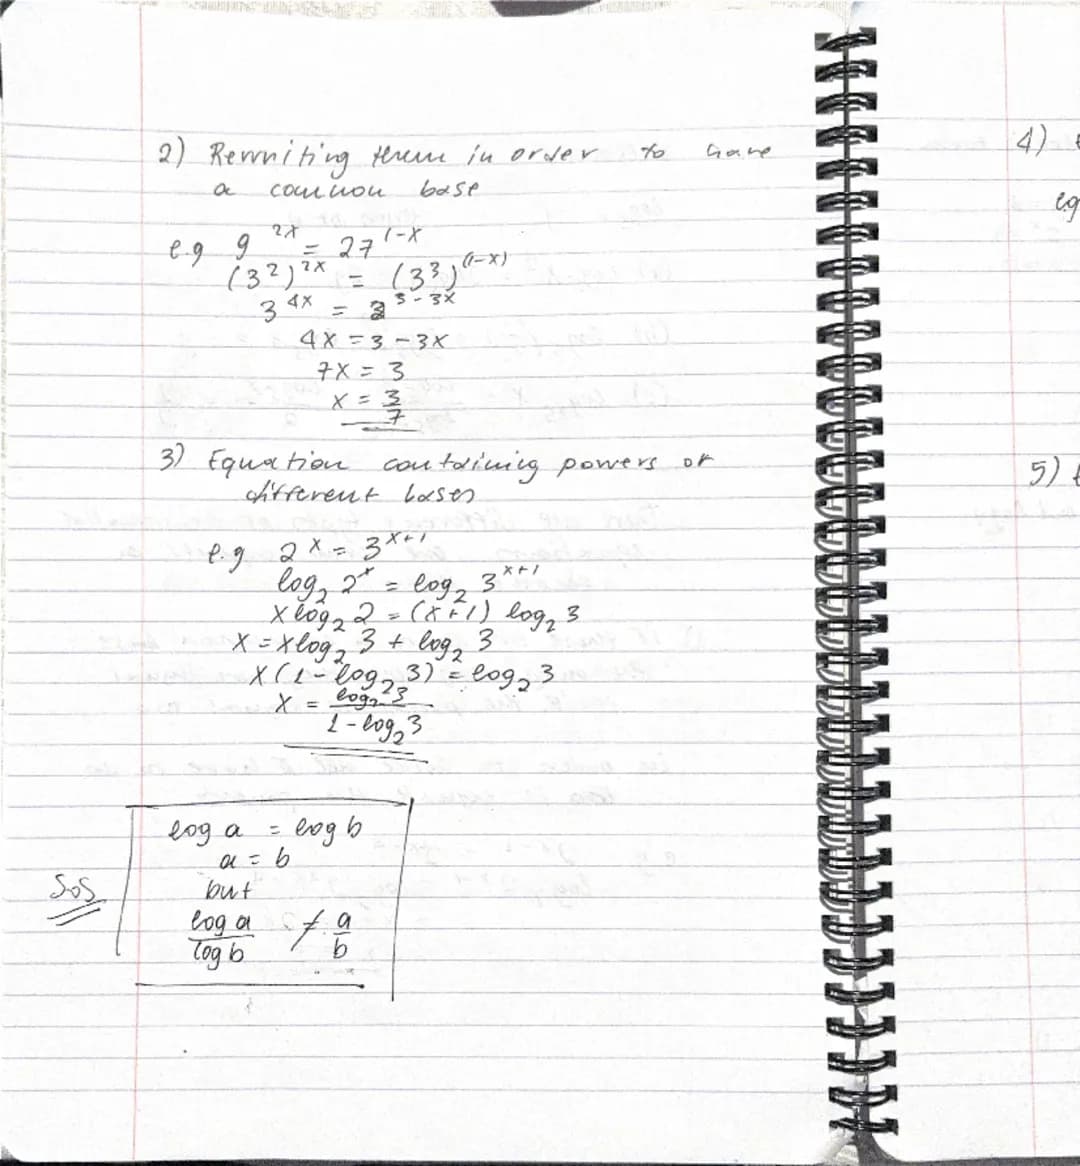 2) Rewriting them in order to have
a common base
e.g 9^{2x} = 27^{1-x}
(3²)^{2x} = (3³)^{(1-x)}
3^{4x} = 3^{3-3x}
4x = 3 - 3x
7x = 3
x = 3/7
3) Equation containing powers of
different bases
e.g 2^x = 3^{x+1}
log₂ 2^x = log₂ 3^{x+1}
x log₂ 2 = (x+1) log₂ 3
x = x log₂ 3 + log₂ 3
x(1 - log₂ 3) = log₂ 3
x = log₂ 3 / 1 - log₂ 3
log a = log b
a = b
SOS
but
log a / log b ≠ a / b
4)
eg
5)